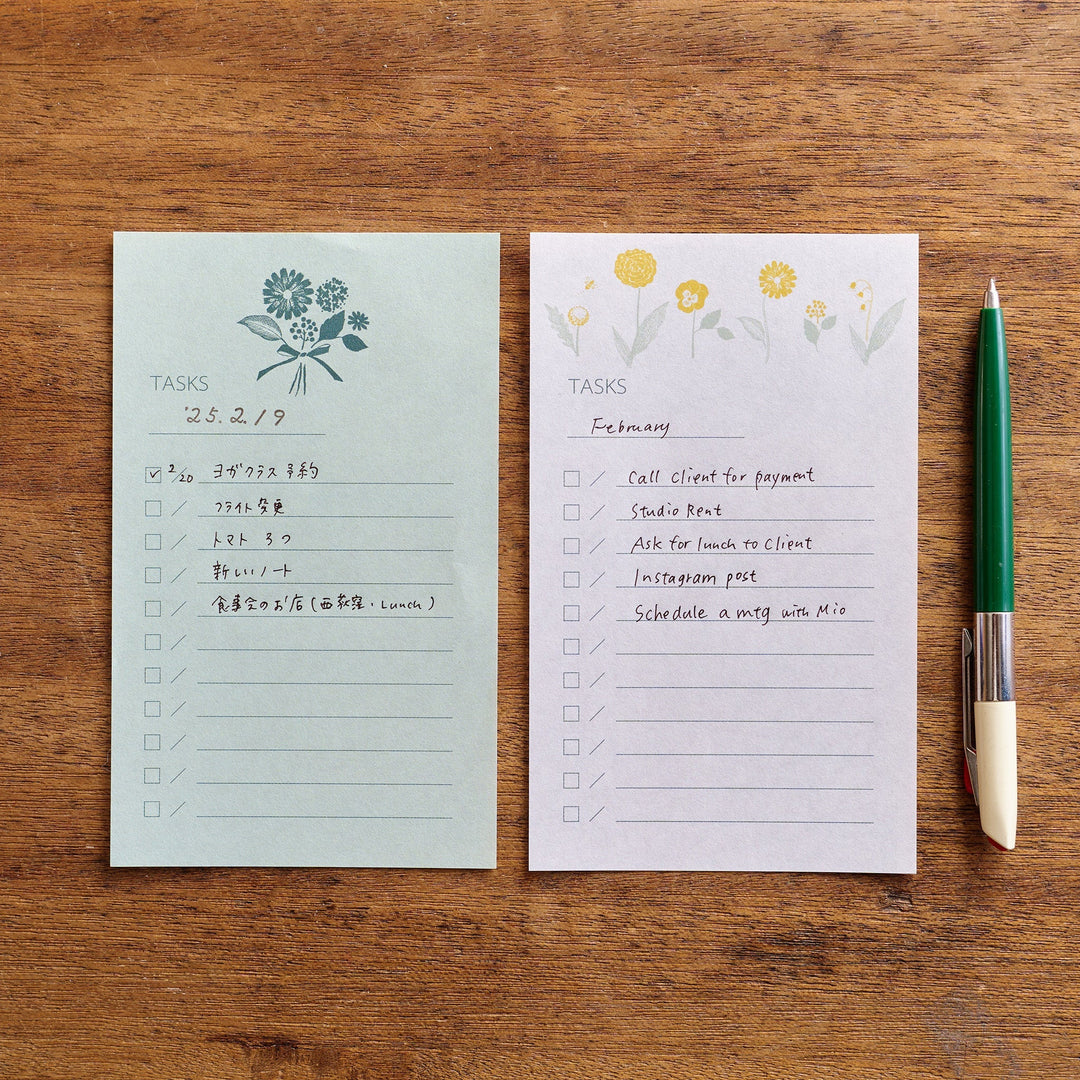 TASKS
'25.2.19
2/20 ヨガクラス予約
フライト変更
トマト 3つ
新しいノート
食事会のお店(西荻窪・Lunch)
TASKS
February
Call client for payment
Studio Rent
Ask for lunch to Client
Instagram post
Schedule a mtg with Mio